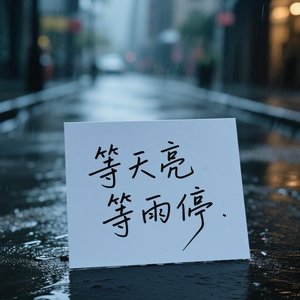 等天亮
等雨停.